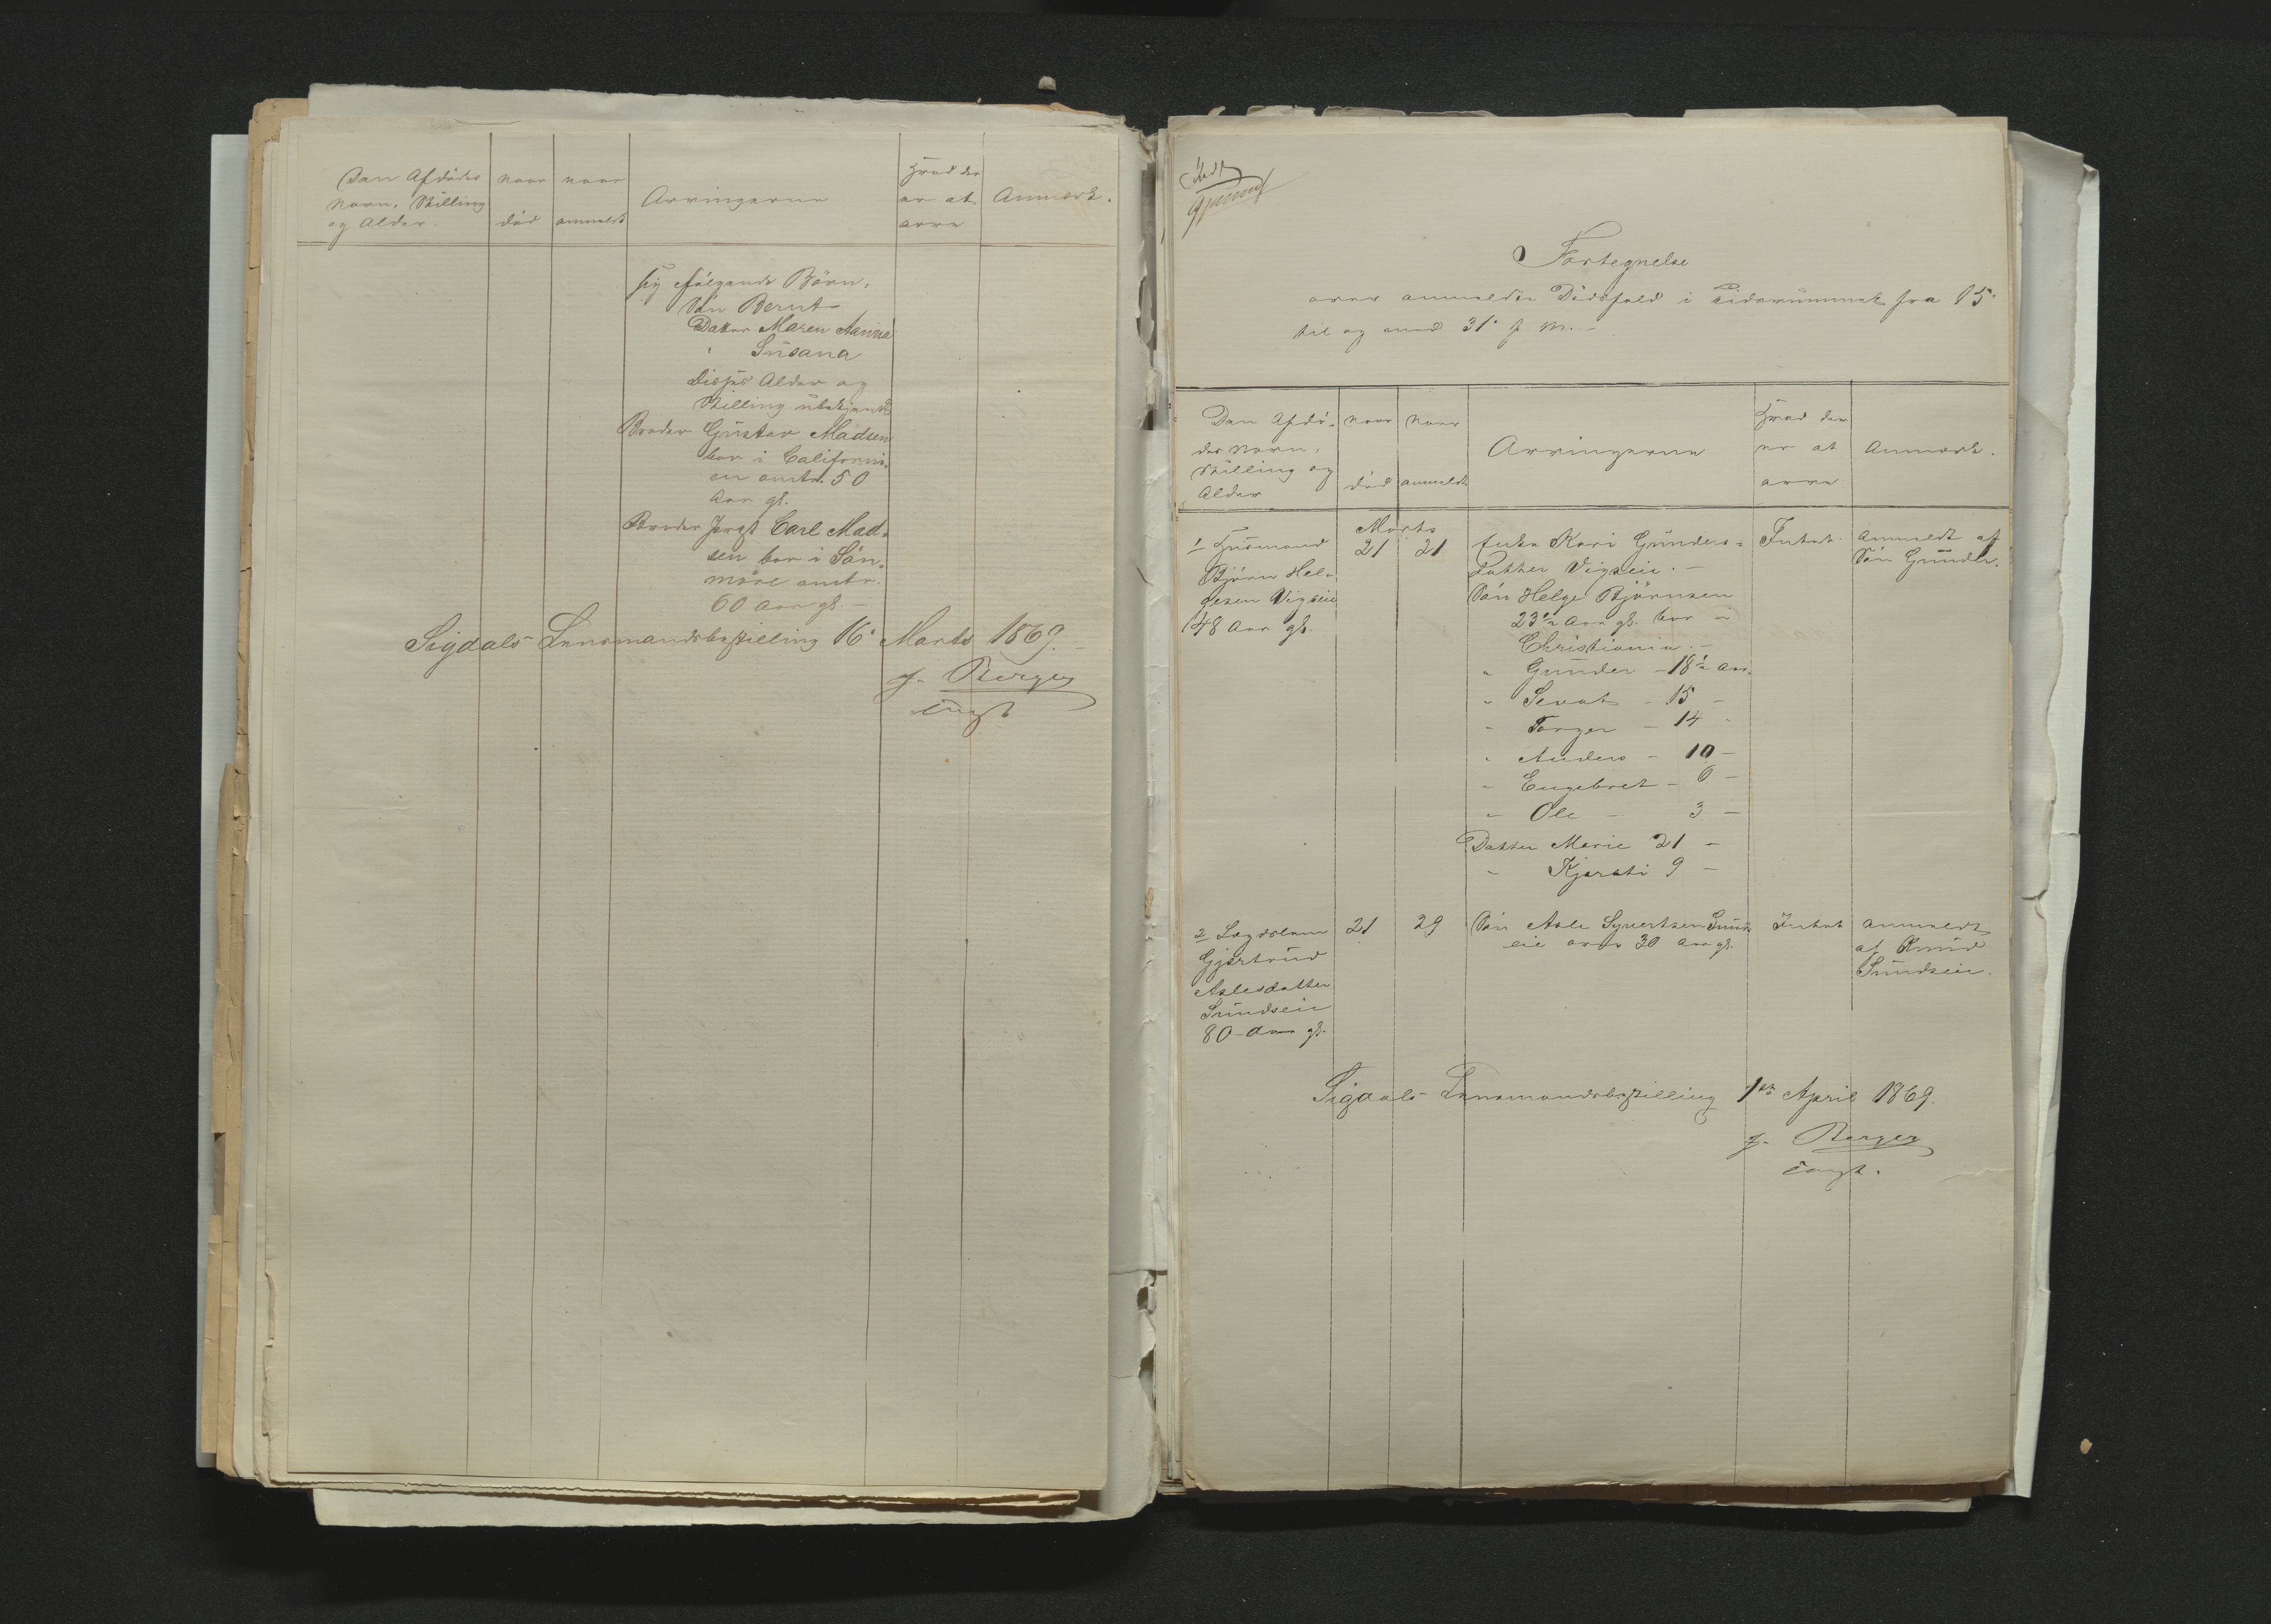 Den Afdødes
Navn, Stilling
og Alder.
naar
død
naar
anmeldt
Arvingerne
Hvad der
er at
arve
Anmærk.
sig følgende Börn,
Sön Bernt
Datter Maren Anna
" Susana
Disses Alder og
Stilling ubekjendt
Broder Gustav Madsen
bor i Californi-
en omtr. 50
Aar gl.
Broder Carl Mad-
sen bor i Sön-
möre omtr.
60 Aar gl. -
Sigdals Lensmandsbestilling 16' Marts 1869. -
J. Berger
Fortegnelse
over anmeldte Dödsfald i Tidsrummet fra 15'
til og med 31' f. M. -
Den Afdö-
des Navn,
Stilling og
Alder
naar
död
naar
anmeldt
Arvingerne
Hvad der
er at
arve
Anmærk.
Marts
1 Husmand
Björn Hel-
gesen Vigseie
48 Aar gl.
21
21
Enke Kari Gunders-
datter Vigseie. -
Sön Helge Björnsen
23 1/2 Aar gl. bor i
Christiania. -
" Gunder - 18 1/2 Aar.
" Sevat - 15 -
" Torger - 14 -
" Anders - 10 -
" Engebret - 6 -
" Ole - 3 -
Datter Marie 21 -
" Kjersti 9 -
Intet.
Anmeldt af
Sön Gunder.
2 Lægdslem
Gjertrud
Aslesdatter
Sundseie
80 - Aar gl.
21
29
Sön Asle Syvertsen Sunds
eie over 30 Aar gl.
Intet
Anmeldt
af Knud
Sundseie.
Sigdals Lensmandsbestilling 1ste April 1869.
J. Berger